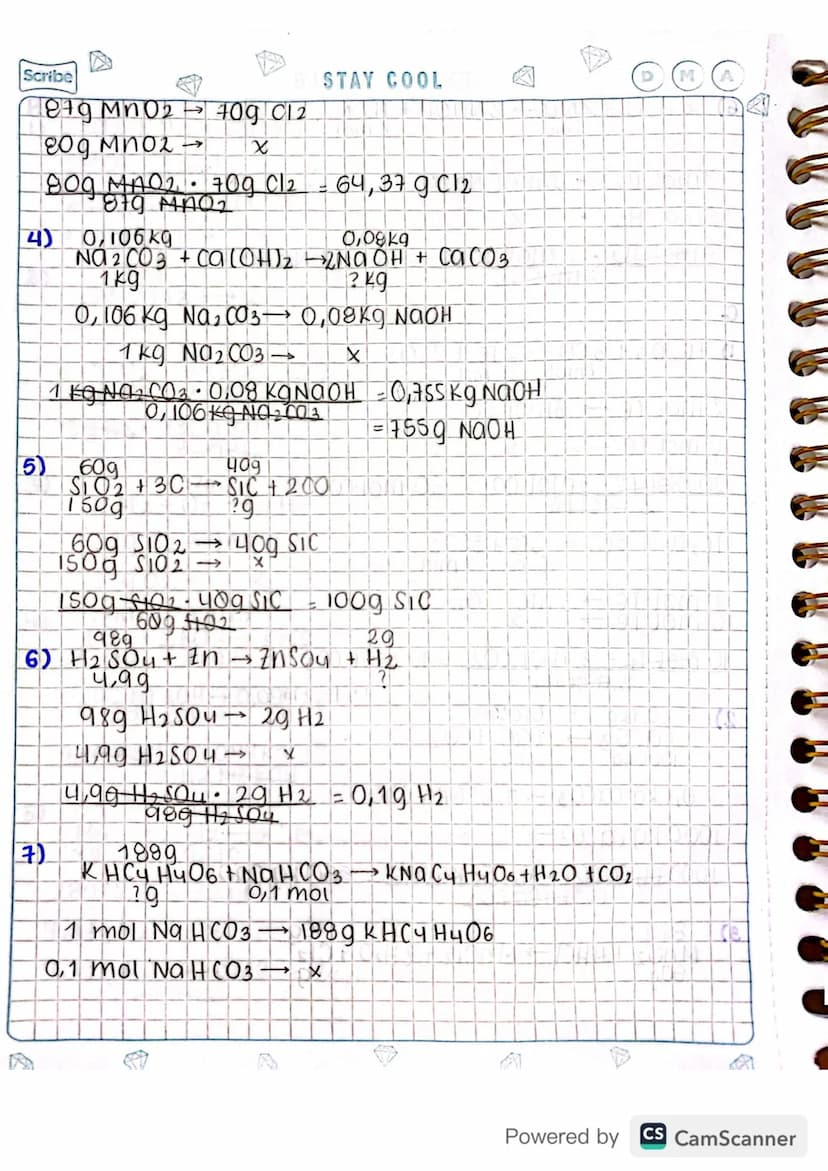 Scribe
STAY COOL
D M A
87g MnO2 → 70g Cl2
80g MnO2 → x
80g MnO2 · 70g Cl2 = 64,37 g Cl2
87g MnO2
4) 0,106kg 0,08kg
Na2CO3 + Ca(OH)2 → 2NaOH + CaCO3
1kg ?kg
0,106 Kg Na2CO3 → 0,08Kg NaOH
1kg Na2CO3 → x
1 kg Na2CO3 · 0,08 KgNaOH = 0,755Kg NaOH
0,106 kg Na2CO3
= 755g NaOH
5) 60g 40g
SiO2 + 3C → SiC + 2CO
150g ?g
60g SiO2 → 40g SiC
150g SiO2 → x
150g SiO2 · 40g SiC = 100g SiC
60g SiO2
98g 2g
6) H2SO4 + Zn → ZnSO4 + H2
4,9g ?
98g H2SO4 → 2g H2
4,9g H2SO4 → x
4,9g H2SO4 · 2g H2 = 0,1g H2
98g H2SO4
7) 188g
KHC4H4O6 + NaHCO3 → KNaC4H4O6 + H2O + CO2
?g 0,1 mol
1 mol NaHCO3 → 188g KHC4H4O6
0,1 mol NaHCO3 → x
Powered by CS CamScanner